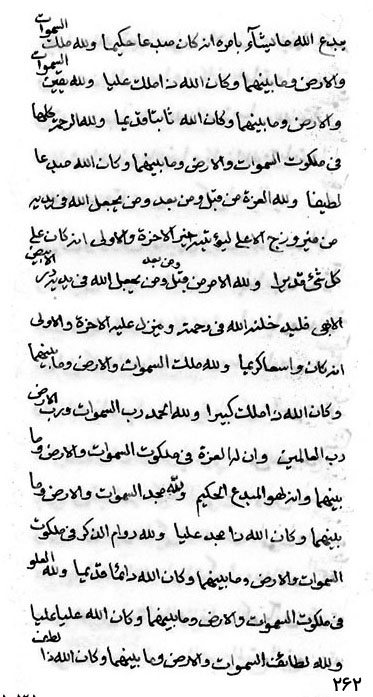 يبدع الله ما يشآء بامره انه كان مبدعا حكيما ولله ملك السموات
والارض وما بينهما وكان الله ذا ملك عليا ولله السموات
والارض وما بينهما وكان الله ثابتا قديما ولله الرحمة كلها
فى ملكوت السموات والارض وما بينهما وكان الله مبدعا
لطيفا ولله العزة من قبل ومن بعد ومن يجعل الله فى يديه
من الاعلى ليؤتينه خير الاخرة والاولى انه كان على
كل شئ قديرا ولله الامر من قبل ومن بعد ومن يجعل الله فى يديه
الابهى فليدخلنه الله فى رحمته وينزل عليه الاخرة والاولى
انه كان واسعا كريما ولله ملك السموات والارض وما بينهما
وكان الله ذا ملك كبيرا ولله الحمد رب السموات ورب الارض
رب العالمين وان له العزة فى ملكوت السموات والارض وما
بينهما وانه لهو المبدع الحكيم ولله مجد السموات والارض وما
بينهما وكان الله ذا مجد عليا ولله دوام الذكر فى ملكوت
السموات والارض وما بينهما وكان الله دائما قديما ولله العلو
فى ملكوت السموات والارض وما بينهما وكان الله علياعليا
ولله لطائف السموات والارض وما بينهما وكان الله ذا لطف
٢٦٢